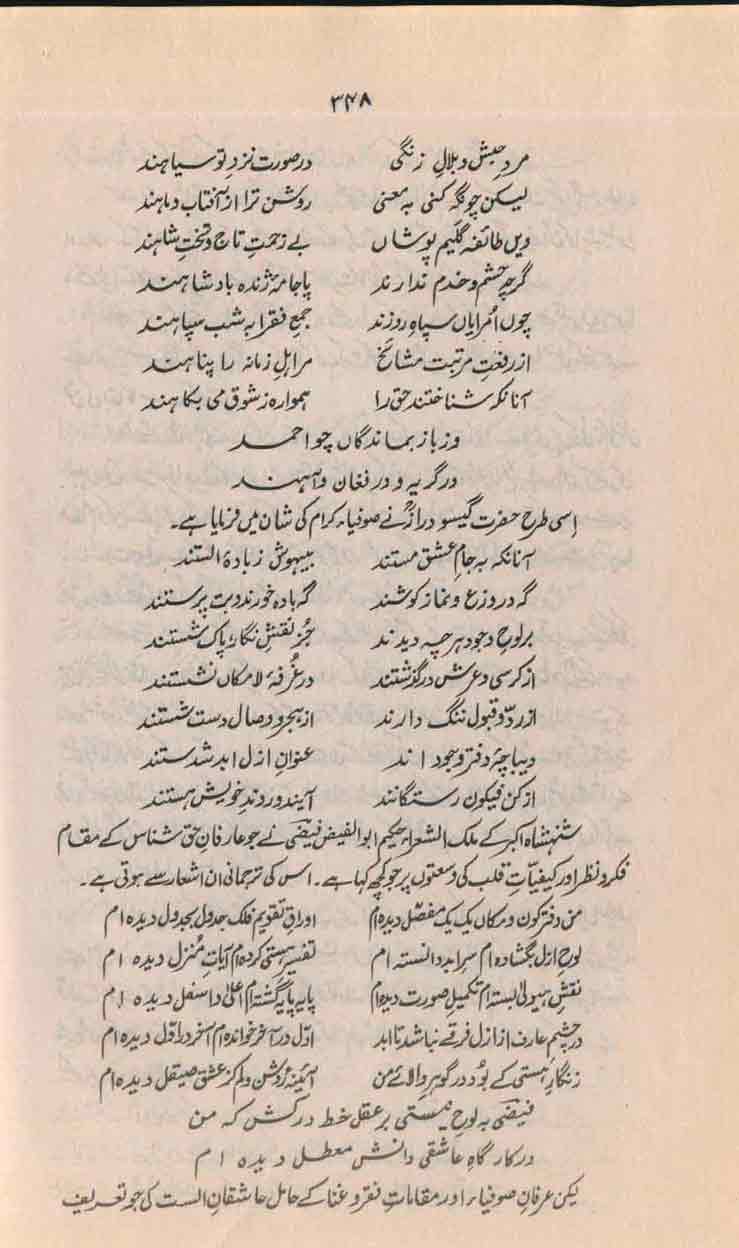 ۳۴۸
مردِ حبش و بلالِ زنگی درصورت نزدِ تو سیاہند
لیکن چو نگہ کنی بہ معنی روشن ترا از آفتاب و ماہند
ویں طائفہ گلیم پوشاں بے زحمتِ تاج و تختِ شاہند
گرچہ حشم و خدم ندارند باجامۂ ژندہ بادشاہند
چوں اُمرایاں سپاہِ روزند جمعِ فقرا بہ شب سپاہند
از رفعتِ مرتبت مشائخ مراہلِ زمانہ را پناہند
آنانکہ شناختند حق را ہموارہ ز شوق می بکاہند
وز بازبماندگاں چو احمد
درگریہ و درفغان و آہند
اِسی طرح حضرت گیسو درازؒ نے صوفیاء کرام کی شان میں فرمایا ہے۔
آنانکہ بہ جامِ عشق مستند بیہوش زبادۂ الستند
گہ در ورع و نماز کوشند گہ بادہ خورند و بت پرستند
بر لوحِ وجود ہرچہ دیدند جُز نقشِ نگار پاک شستند
از کرسی و عرش درگزشتند در غُرفۂ لامکاں نشستند
از ردّ و قبول ننگ دارند از ہجر و وصال دست شستند
دیباچۂ دفترِ وجود اند عنوانِ ازل ابد شدستند
از کن فیکون رستگانند آیند و روند خویش ہستند
شہنشاہ اکبر کے ملک الشعراء حکیم ابوالفیض فیضیؔ نے جو عارفانِ حق شناس کے مقام
فکر و نظر اور کیفیّاتِ قلب کی وسعتوں پر جو کچھ کہا ہے۔ اس کی ترجمانی ان اشعار سے ہوتی ہے۔
من دفترِ کون و مکاں یک یک مفصّل دیدہ ام اوراقِ تقویمِ فلک جدول بجدول دیدہ ام
لوحِ ازل بگشادہ ام سرِ ابد دانستہ ام تفسیرِ ہستی کردہ ام آیاتِ مُنزل دیدہ ام
نقشِ ہیولیٰ بستہ ام تکمیلِ صورت دیدہ ام پایہ پایہ گشتہ ام اعلیٰ و اسفل دیدہ ام
در چشمِ عارف از ازل فرقے نباشد تا ابد اوّل در آخر خواندہ ام آخر در اوّل دیدہ ام
زنگارِ ہستی کے بوُد در گوہرِ والائے من آئینۂ روشن دلم کز عشق صیقل دیدہ ام
فیضیؔ بہ لوحِ ہستی بر عقل خط درکش کہ من
درکارگاہِ عاشقی دانش معطل دیدہ ام
لیکن عرفانِ صوفیاء اور مقاماتِ فقر و غنا کے حامل عاشقانِ الست کی جو تعریف